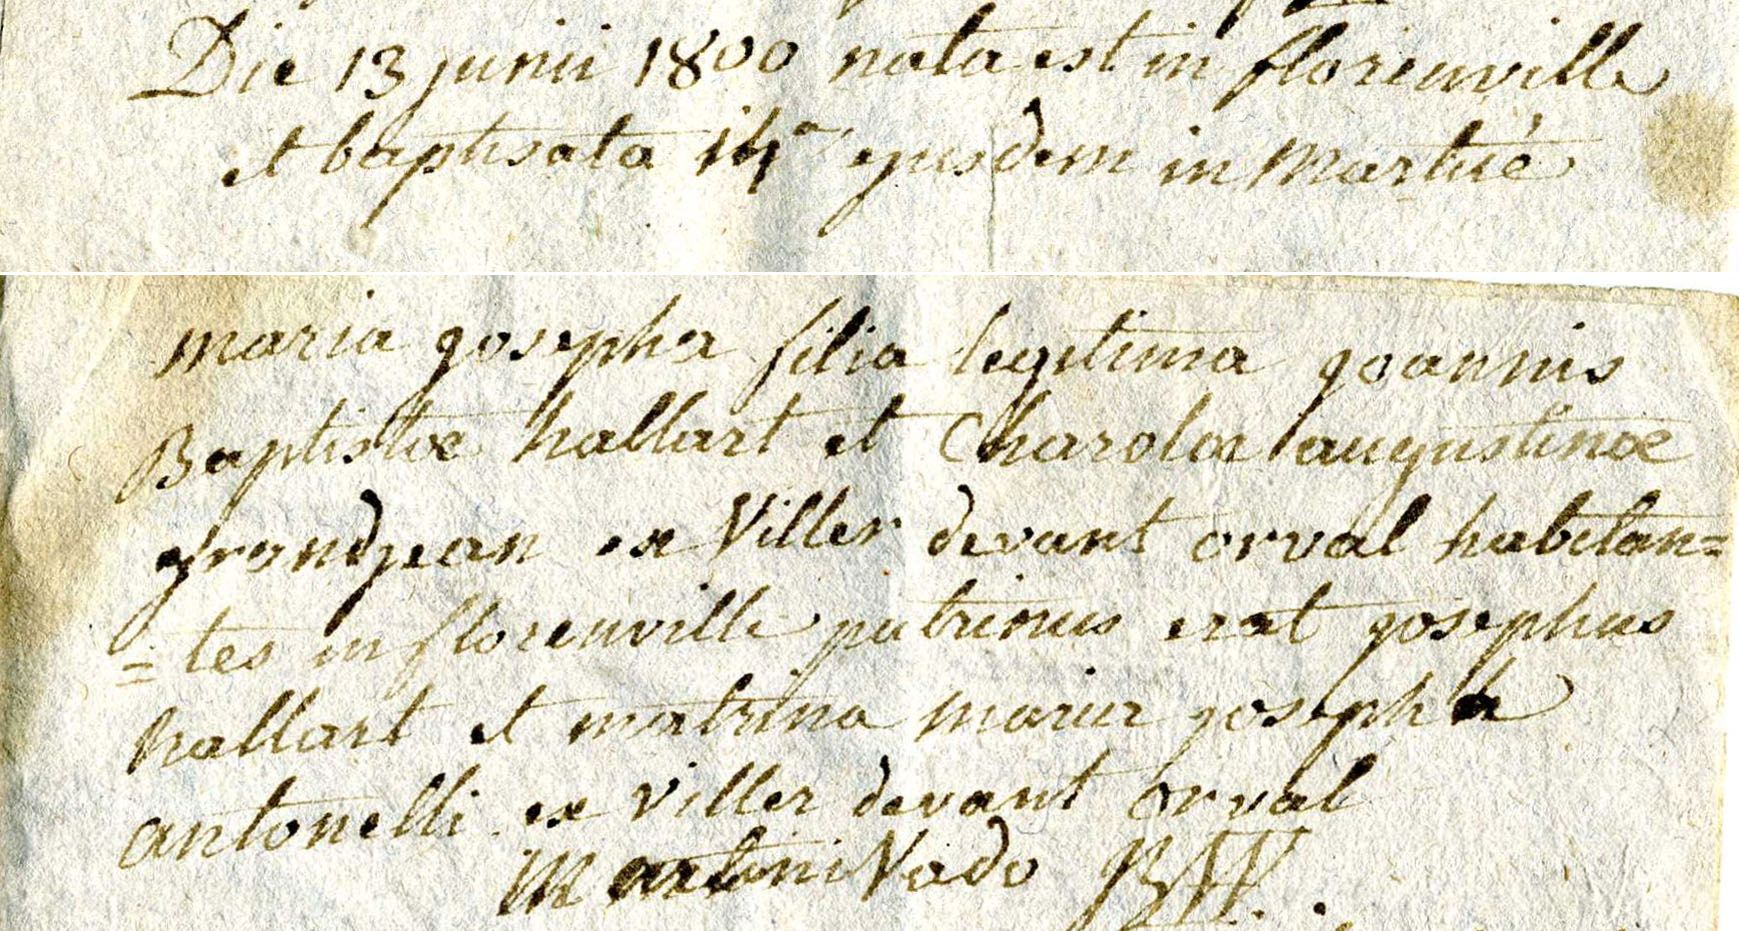 Die 13 junii 1800 nata est in florenville
et baptisata 14a ejusdem in Martué
maria josepha filia legitima joannis
Baptistæ hallart et Charolæ augustinæ
grandjean ex Viller devant orval habitan=
=tes in florenville patrinus erat josephus
hallart et matrina maria josepha
antonelli ex viller devant orval